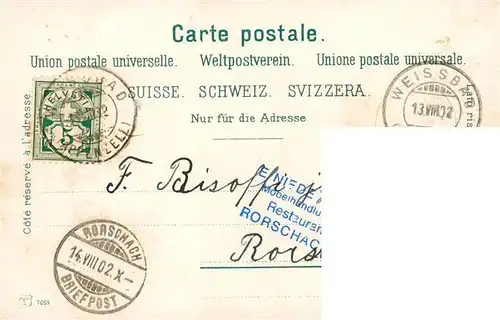 Carte postale.
Union postale universelle. Weltpostverein. Unione postale universale.
SUISSE. SCHWEIZ. SVIZZERA.
Nur für die Adresse
Côté réservé à l'adresse.
HELVETIA
5
APPENZELL
WEISSBAD
13.VIII.02
F. Bisoffi
Möbelhandlu
Restaura
RORSCHAC
Rors
RORSCHACH
14.VIII.02.X-
BRIEFPOST
7055